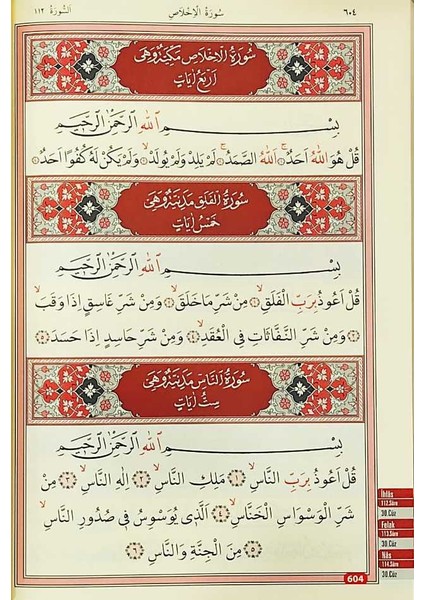 ٦٠٤ سُورَةُ الْاِخْلَاصِ اَلسُّورَةُ ١١٢
سُورَةُ الْاِخْلَاصِ مَكِّيَّةٌ وَهِيَ
اَرْبَعُ اٰيَاتٍ
بِسْمِ اللّٰهِ الرَّحْمٰنِ الرَّحٖيمِ
قُلْ هُوَ اللّٰهُ اَحَدٌۚ ﴿١﴾ اَللّٰهُ الصَّمَدُۚ ﴿٢﴾ لَمْ يَلِدْ وَلَمْ يُولَدْۙ ﴿٣﴾ وَلَمْ يَكُنْ لَهُ كُفُوًا اَحَدٌ ﴿٤﴾
سُورَةُ الْفَلَقِ مَدَنِيَّةٌ وَهِيَ
خَمْسُ اٰيَاتٍ
بِسْمِ اللّٰهِ الرَّحْمٰنِ الرَّحٖيمِ
قُلْ اَعُوذُ بِرَبِّ الْفَلَقِۙ ﴿١﴾ مِنْ شَرِّ مَا خَلَقَۙ ﴿٢﴾ وَمِنْ شَرِّ غَاسِقٍ اِذَا وَقَبَۙ
﴿٣﴾ وَمِنْ شَرِّ النَّفَّاثَاتِ فِي الْعُقَدِۙ ﴿٤﴾ وَمِنْ شَرِّ حَاسِدٍ اِذَا حَسَدَ ﴿٥﴾
سُورَةُ النَّاسِ مَدَنِيَّةٌ وَهِيَ
سِتُّ اٰيَاتٍ
بِسْمِ اللّٰهِ الرَّحْمٰنِ الرَّحٖيمِ
قُلْ اَعُوذُ بِرَبِّ النَّاسِۙ ﴿١﴾ مَلِكِ النَّاسِۙ ﴿٢﴾ اِلٰهِ النَّاسِۙ ﴿٣﴾ مِنْ
شَرِّ الْوَسْوَاسِ الْخَنَّاسِۙ ﴿٤﴾ اَلَّذٖي يُوَسْوِسُ فٖي صُدُورِ النَّاسِۙ
﴿٥﴾ مِنَ الْجِنَّةِ وَالنَّاسِ ﴿٦﴾
İhlâs
112.Sûre
30.Cüz
Felak
113.Sûre
30.Cüz
Nâs
114.Sûre
30.Cüz
604